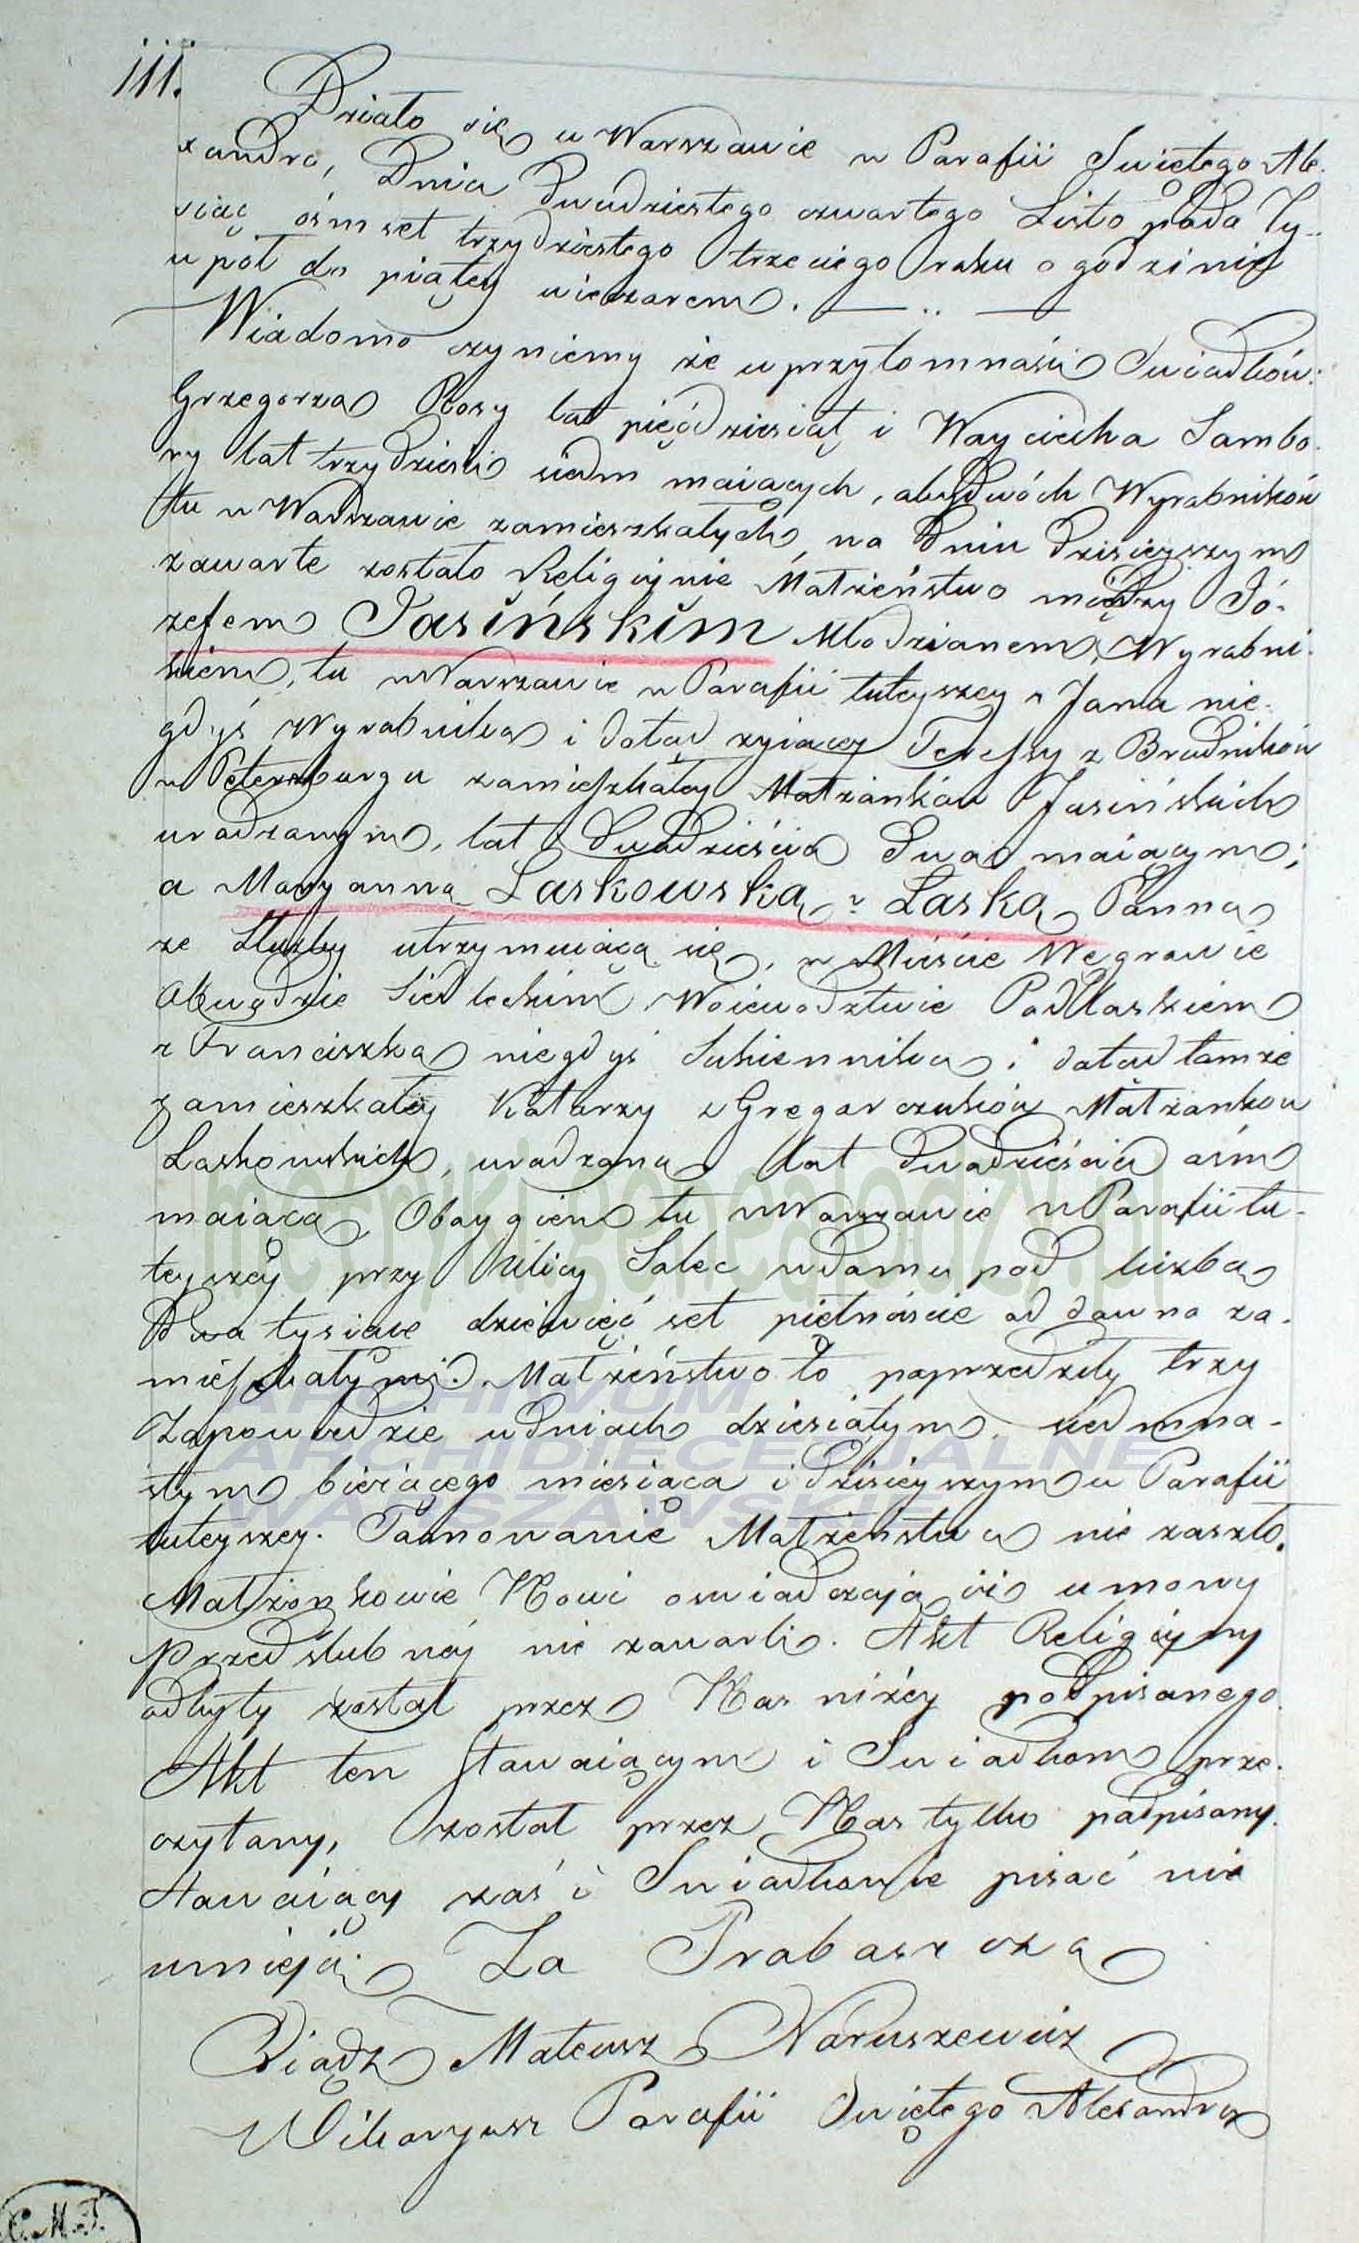 111.
Działo się w Warszawie w Parafii Swiętego Ale-
xandra, Dnia Dwudziestego czwartego Listopada Ty-
siąc ośmset trzydziestego trzeciego roku o godzinie
w pół do piątey wieczorem.
Wiadomo czyniemy że w przytomności Swiadków:
Grzegorza Rosy lat pięćdziesiąt i Woyciecha Sambo-
ry lat trzydzieści siedm maiących, obydwóch Wyrobników
tu w Warszawie zamieszkałych, na dniu dzisieyszym
zawarte zostało Religijnie Małżeństwo między Jó-
zefem Jasińskim Młodzianem, Wyrobni-
kiem, tu w Warszawie w Parafii tuteyszey z Jana nie-
gdyś Wyrobnika i dotąd żyiącey Teressy z Brudników
w Petersburgu zamieszkałey Małżonków Jasińskich
urodzonym, lat Dwadzieścia Dwa maiącym;
a Maryanną Laskowską v Laską Panną
ze Służby utrzymuiącą się, w Mieście Węgrowie
Obwodzie Siedleckim Woiewodztwie Podlaskiem
z Franciszka niegdyś Sukiennika i dotąd tamże
zamieszkałey Katarzy z Gregorczuków Małżonków
Laskowskich, urodzoną, lat dwadzieścia ośm
maiącą, Oboygiem tu w Warszawie w Parafii tu-
teyszey przy Ulicy Solec w domu pod liczbą
Dwa tysiące dziewięć set piętnaście od dawna za-
mieszkałymi. Małżeństwo to poprzedziły trzy
Zapowiedzie w dniach dziesiątym, siedmna-
stym bieżącego miesiąca i dzisieyszym w Parafii
tuteyszey. Tamowanie Małżeństwa nie zaszło.
Małżonkowie Nowi oswiadczają iż umowy
przedślubnéj nie zawarli. Akt Religijny
odbyty został przez Nas niżéy podpisanego.
Akt ten stawaiącym i Swiadkom prze-
czytany, został przez Nas tylko podpisany.
Stawaiący zaś i Swiadkowie pisać nie
umieją. Za Proboszcza
Xiądz Mateusz Naruszewicz
Wikaryusz Parafii Swiętego Alexandra
metryki.genealodzy.pl
ARCHIWUM
ARCHIDIECEZJALNE
WARSZAWSKIE